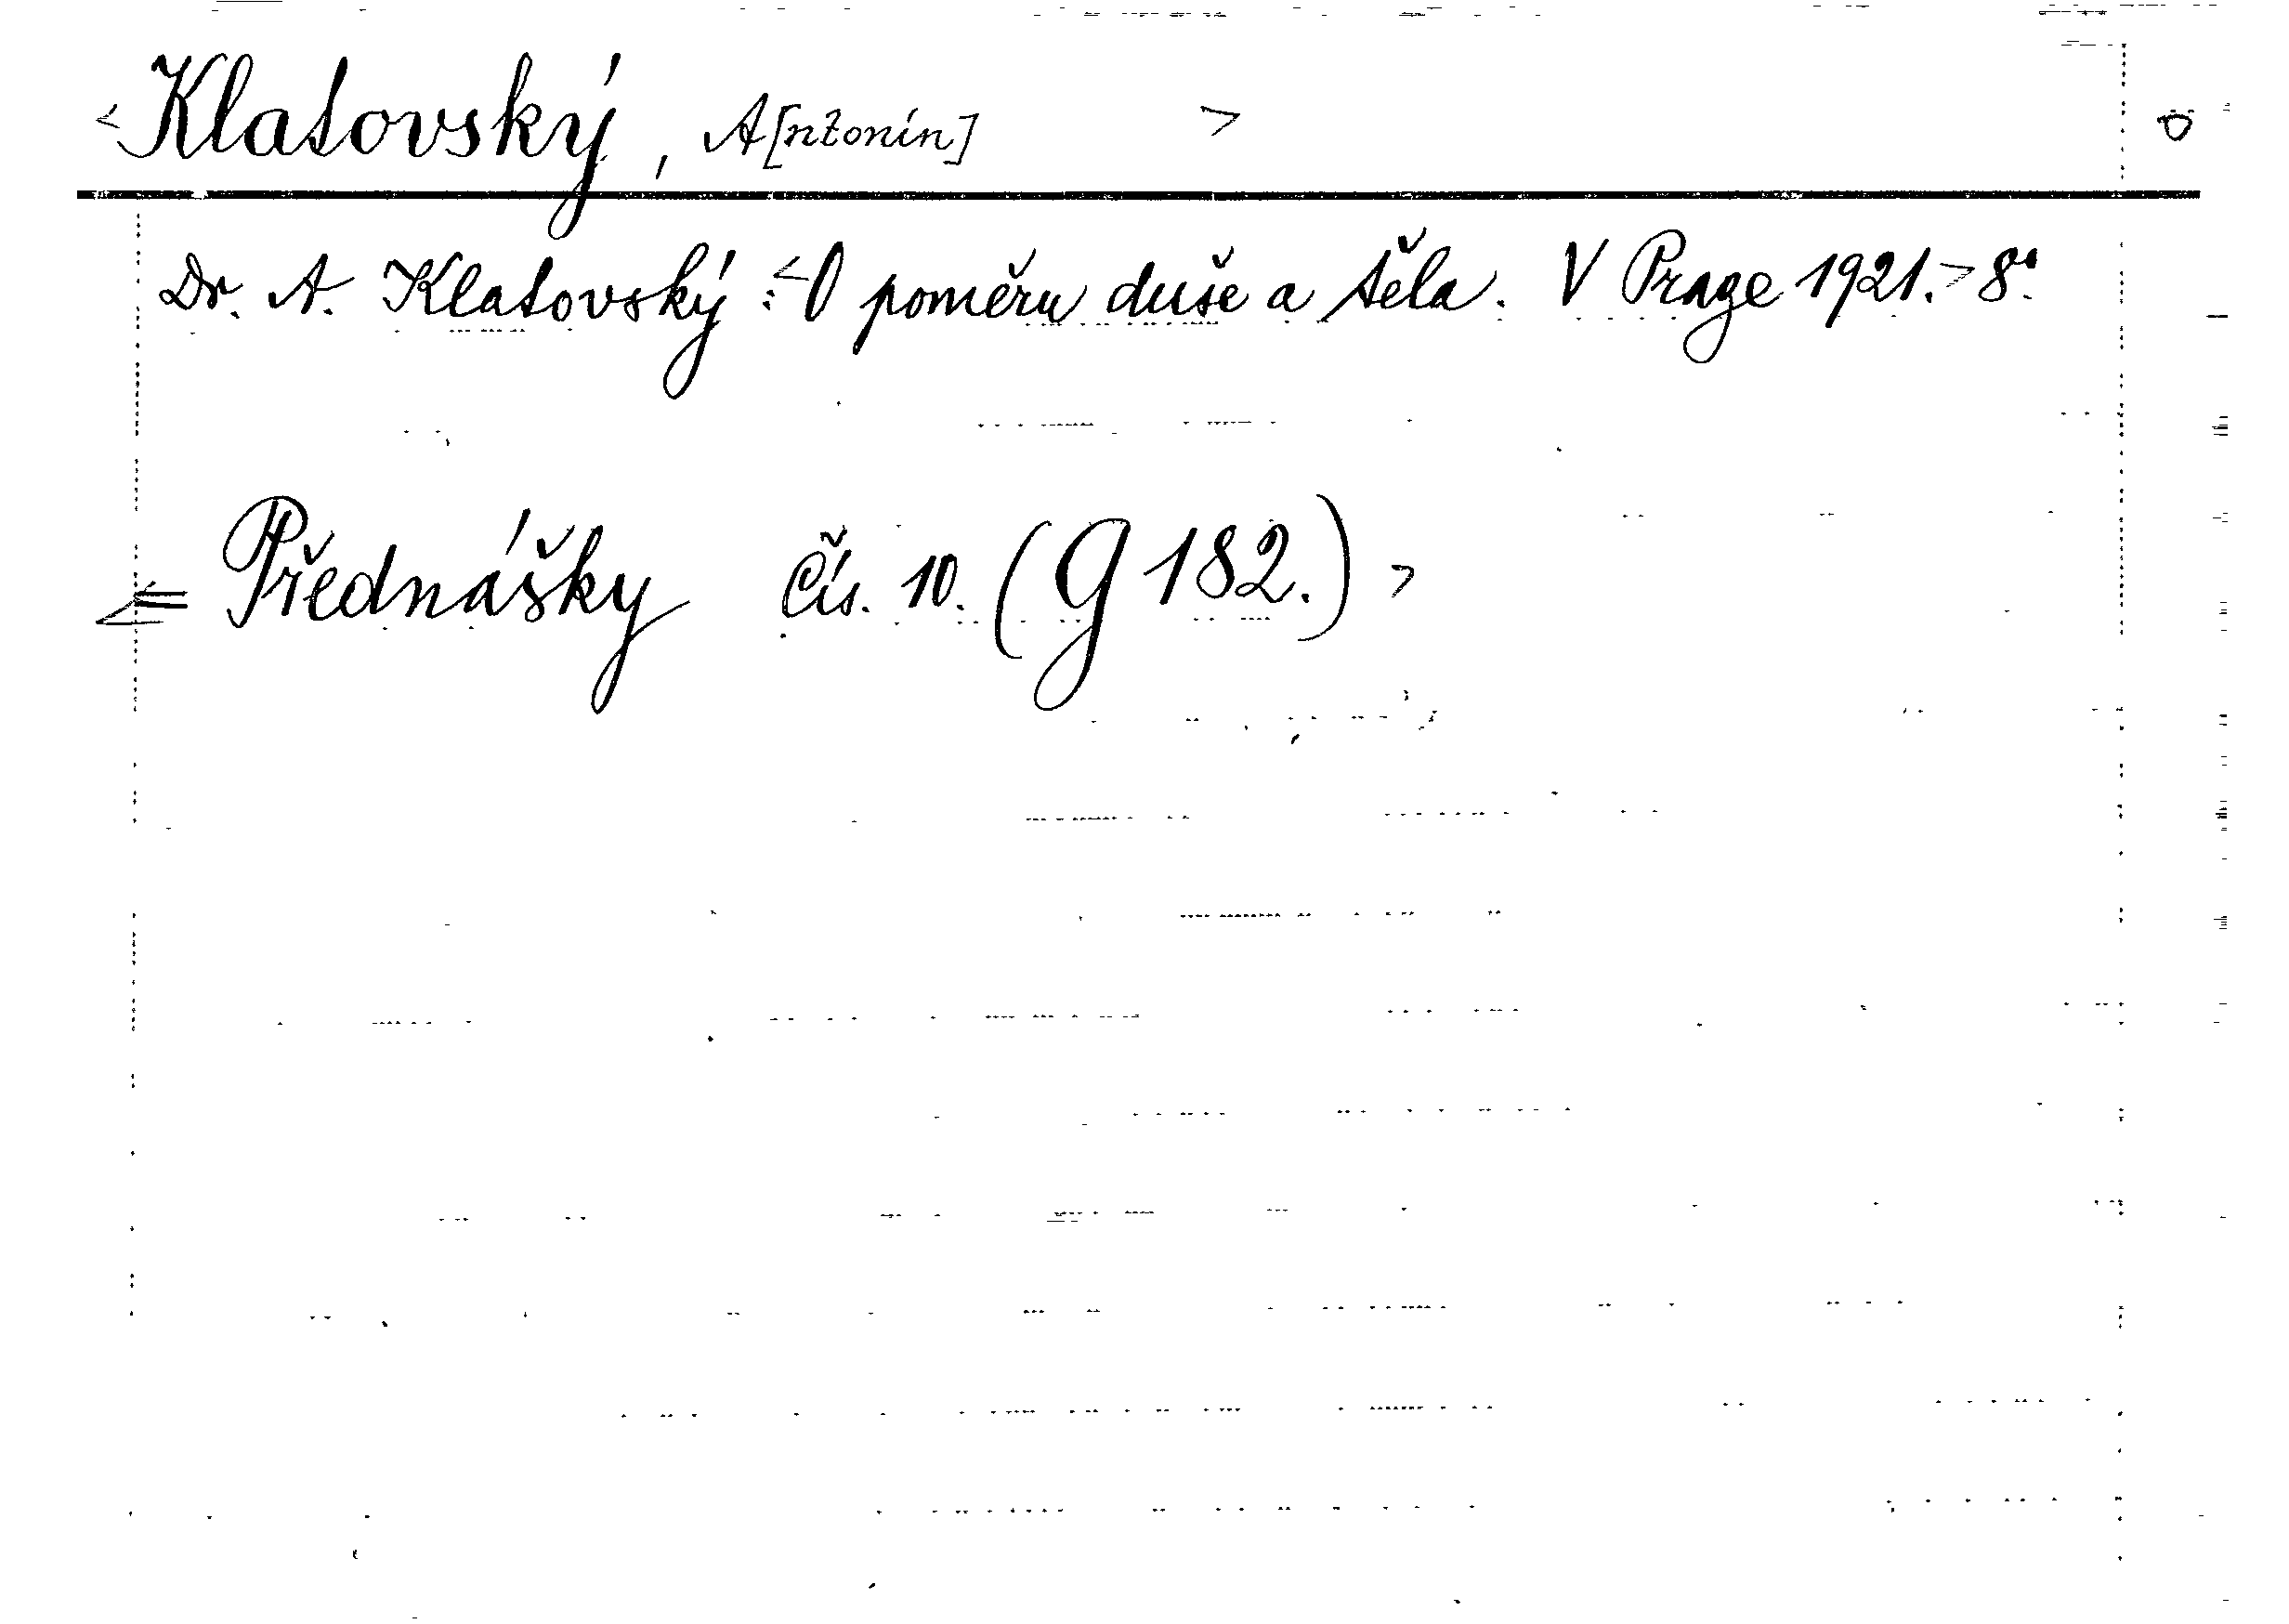 <Klatovský, A[ntonín] >
Dr. A. Klatovský : <O poměru duše a těla. V Praze 1921.> 8°.
<= Přednášky čís. 10. (G 182.) >